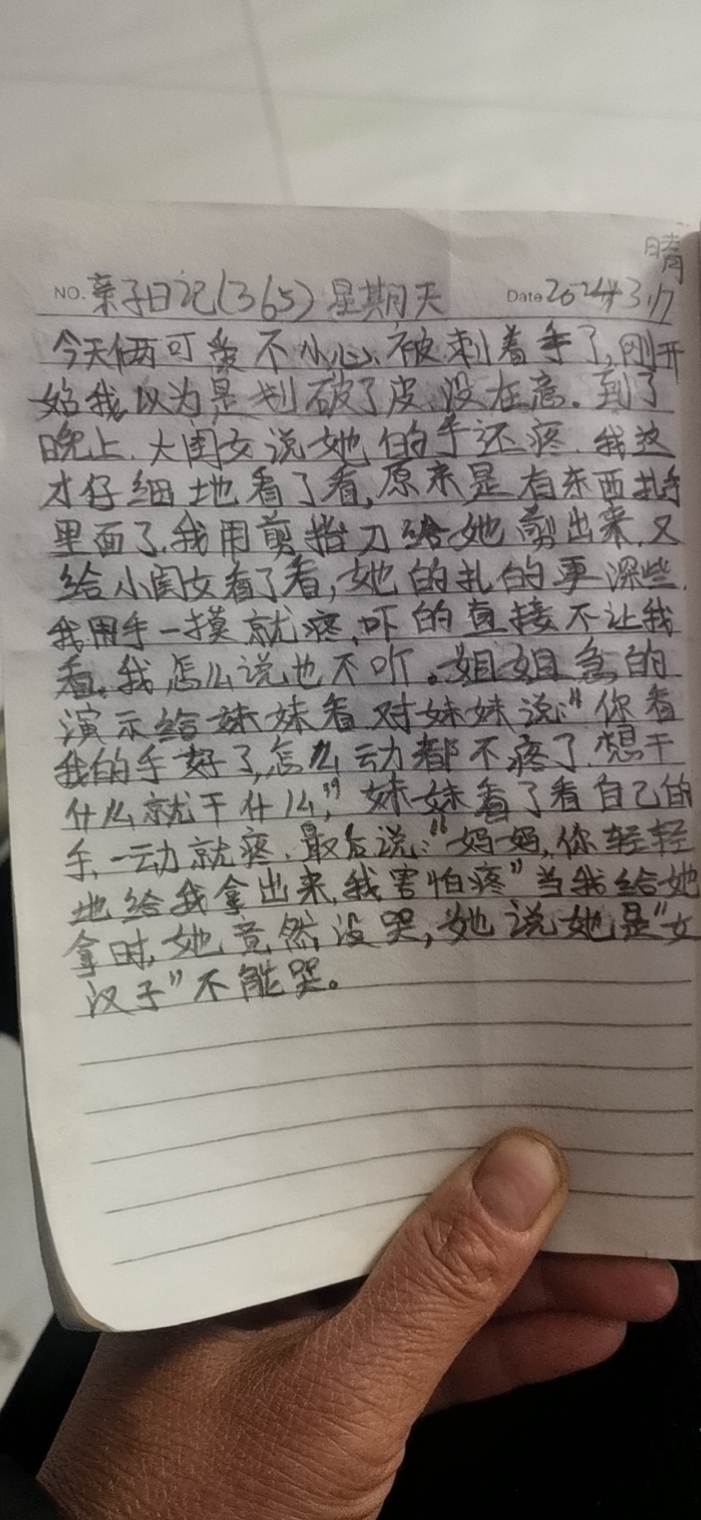 晴
NO. 亲子日记(365) 星期天 Date 2024年3.17
今天俩可爱不小心被刺着手了,刚开
始我以为是划破了皮,没在意。到了
晚上,大闺女说她的手还疼,我这
才仔细地看了看,原来是有东西扎手
里面了,我用剪指刀给她剪出来,又
给小闺女看了看,她的扎的更深些,
我用手一摸就疼,吓的直接不让我
看。我怎么说也不听。姐姐急的
演示给妹妹看对妹妹说:“你看
我的手好了,怎么动都不疼了,想干
什么就干什么,”妹妹看了看自己的
手,一动就疼,最后说:“妈妈,你轻轻
地给我拿出来,我害怕疼”当我给她
拿时,她竟然没哭,她说她是“女
汉子”不能哭。